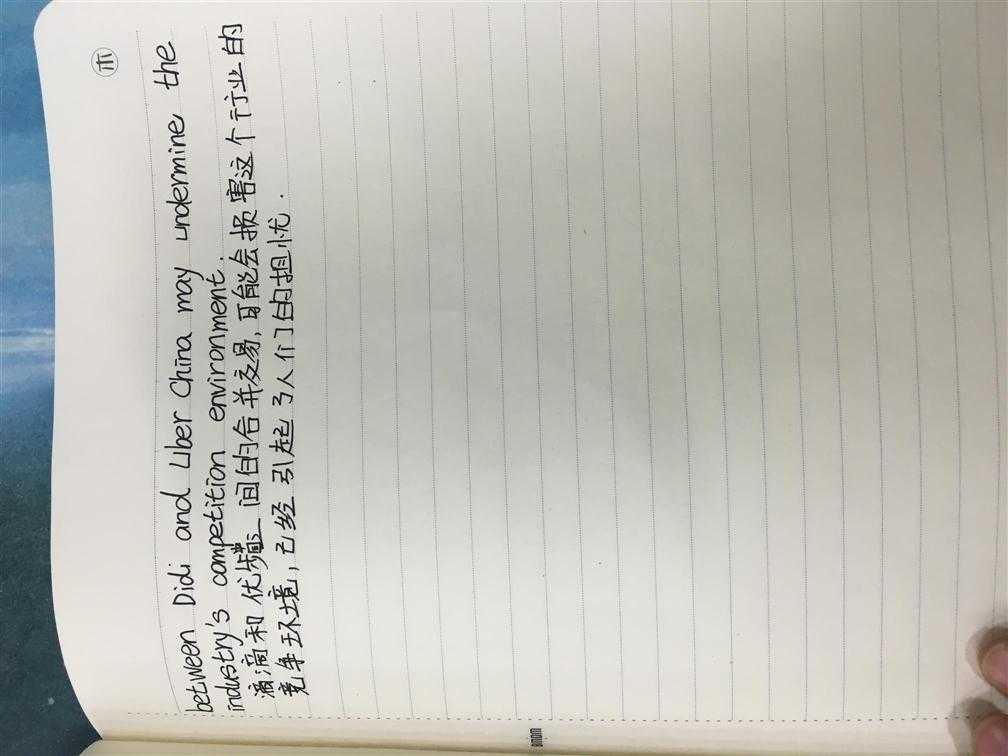 between Didi and Uber China may undermine the
industry's competition environment.
滴滴和优步间的合并交易,可能会损害这个行业的
竞争环境,已经引起了人们的担忧.